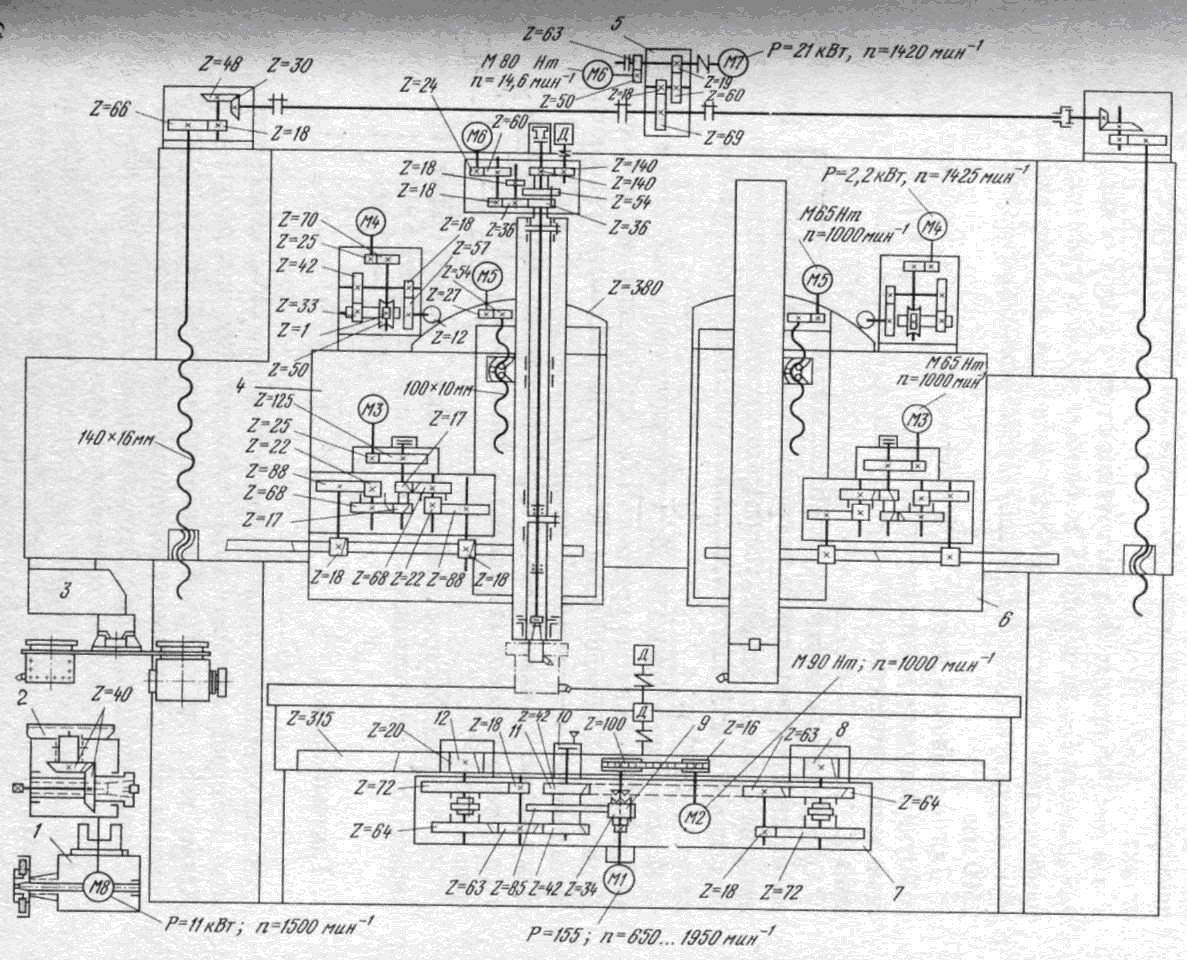 5
Z=63
P=21 кВт, n=1420 мин⁻¹
M 80 Нт
n=14,6 мин⁻¹
М6
М7
Z=48
Z=30
Z=24
Z=50
Z=18
Z=19
Z=60
Z=66
Z=18
М6
Z=60
Д
Z=69
Z=18
Z=140
Z=140
Z=18
Z=54
Z=36
Z=36
P=2,2 кВт, n=1425 мин⁻¹
Z=70
М4
Z=18
M65 Нт
n=1000 мин⁻¹
М4
Z=25
Z=57
Z=42
Z=54
М5
М5
Z=380
Z=33
Z=27
Z=1
Z=12
Z=50
4
100×10мм
M 65 Нт
n=1000 мин⁻¹
Z=125
М3
Z=17
М3
140×16мм
Z=25
Z=22
Z=88
Z=68
Z=17
Z=18
Z=68
Z=22
Z=88
Z=18
3
6
Д
M 90 Нт; n=1000 мин⁻¹
2
Z=40
Z=315
12
Z=18
11
Z=42
10
Д
Z=100
9
Z=16
Z=63
8
Z=20
Z=72
Z=64
М2
1
Z=64
М8
Z=63
Z=85
Z=42
Z=34
М1
Z=18
Z=72
7
P=11 кВт; n=1500 мин⁻¹
P=155; n=650...1950 мин⁻¹